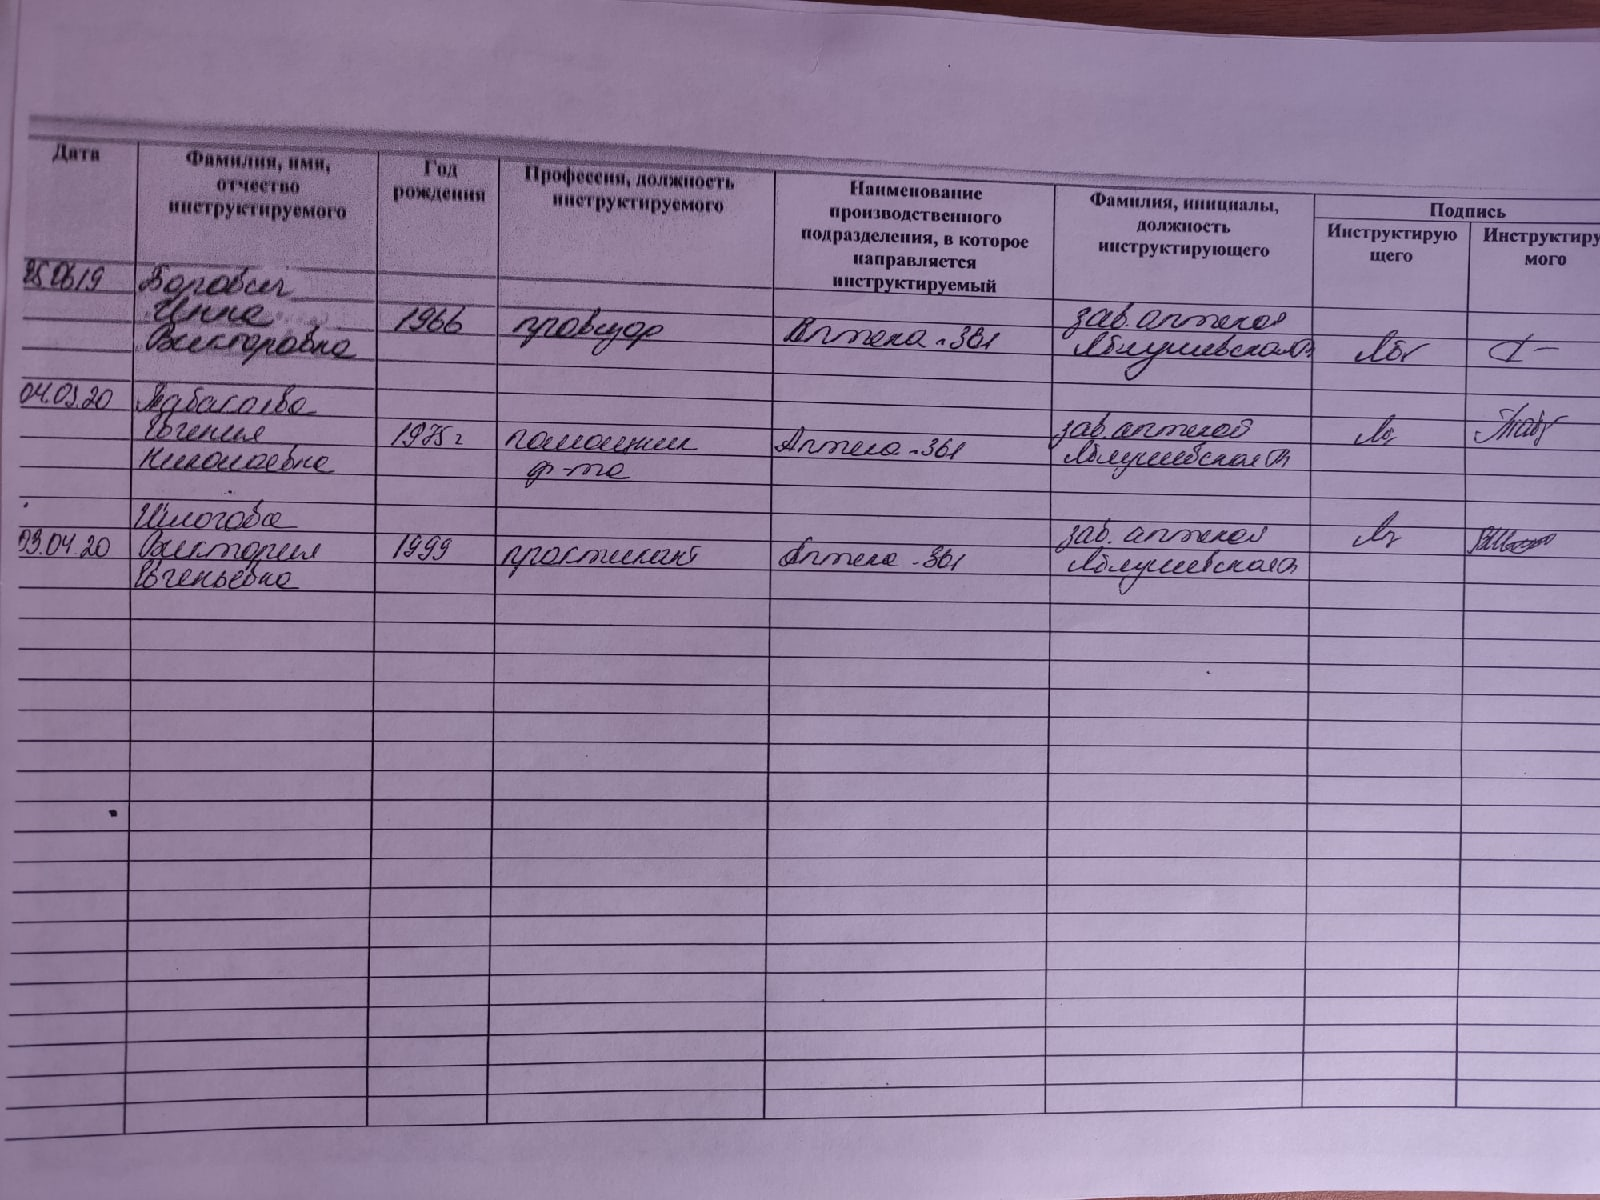 Дата
Фамилия, имя,
отчество
инструктируемого
Год
рождения
Профессия, должность
инструктируемого
Наименование
производственного
подразделения, в которое
направляется
инструктируемый
Фамилия, инициалы,
должность
инструктирующего
Подпись
Инструктирую
щего
Инструктиру
мого
25.06.19
Борович
Инна
Викторовна
1966
провизор
Аптека - 361
зав. аптекой
04.03.20
Табасаева
Евгения
Николаевна
1975 г
помощник
ф-та
Аптека - 361
зав. аптекой
03.04.20
Шлогова
Виктория
Евгеньевна
1999
практикант
Аптека - 361
зав. аптекой